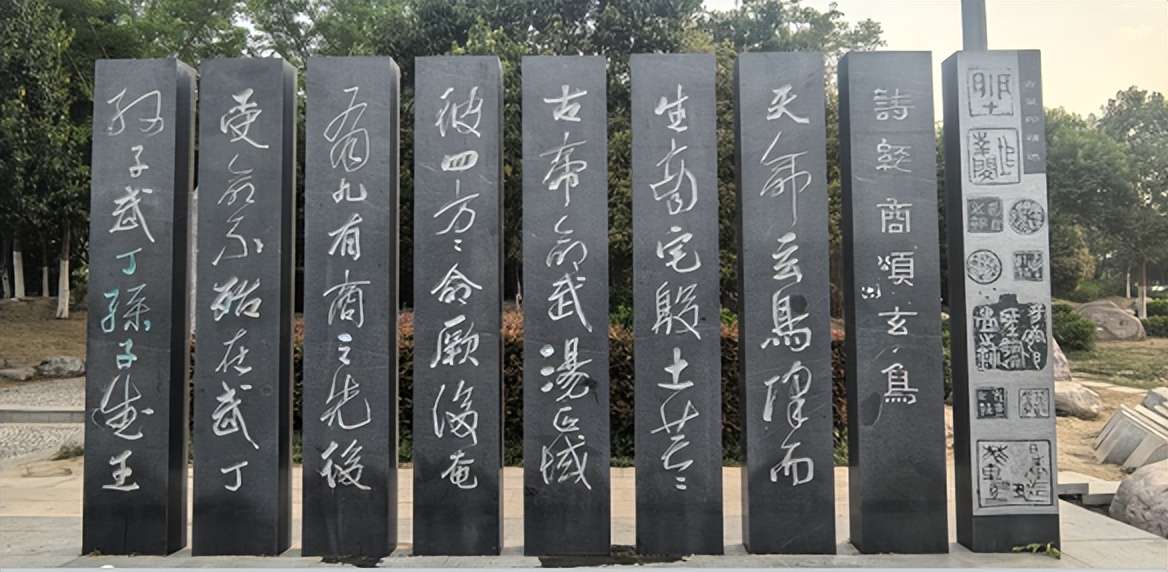 詩經商頌玄鳥
天命玄鳥降而
生商宅殷土芒〻
古帝命武湯正域
彼四方〻命厥後奄
有九有商之先後
受命不殆在武丁
孫子武丁孫子武王